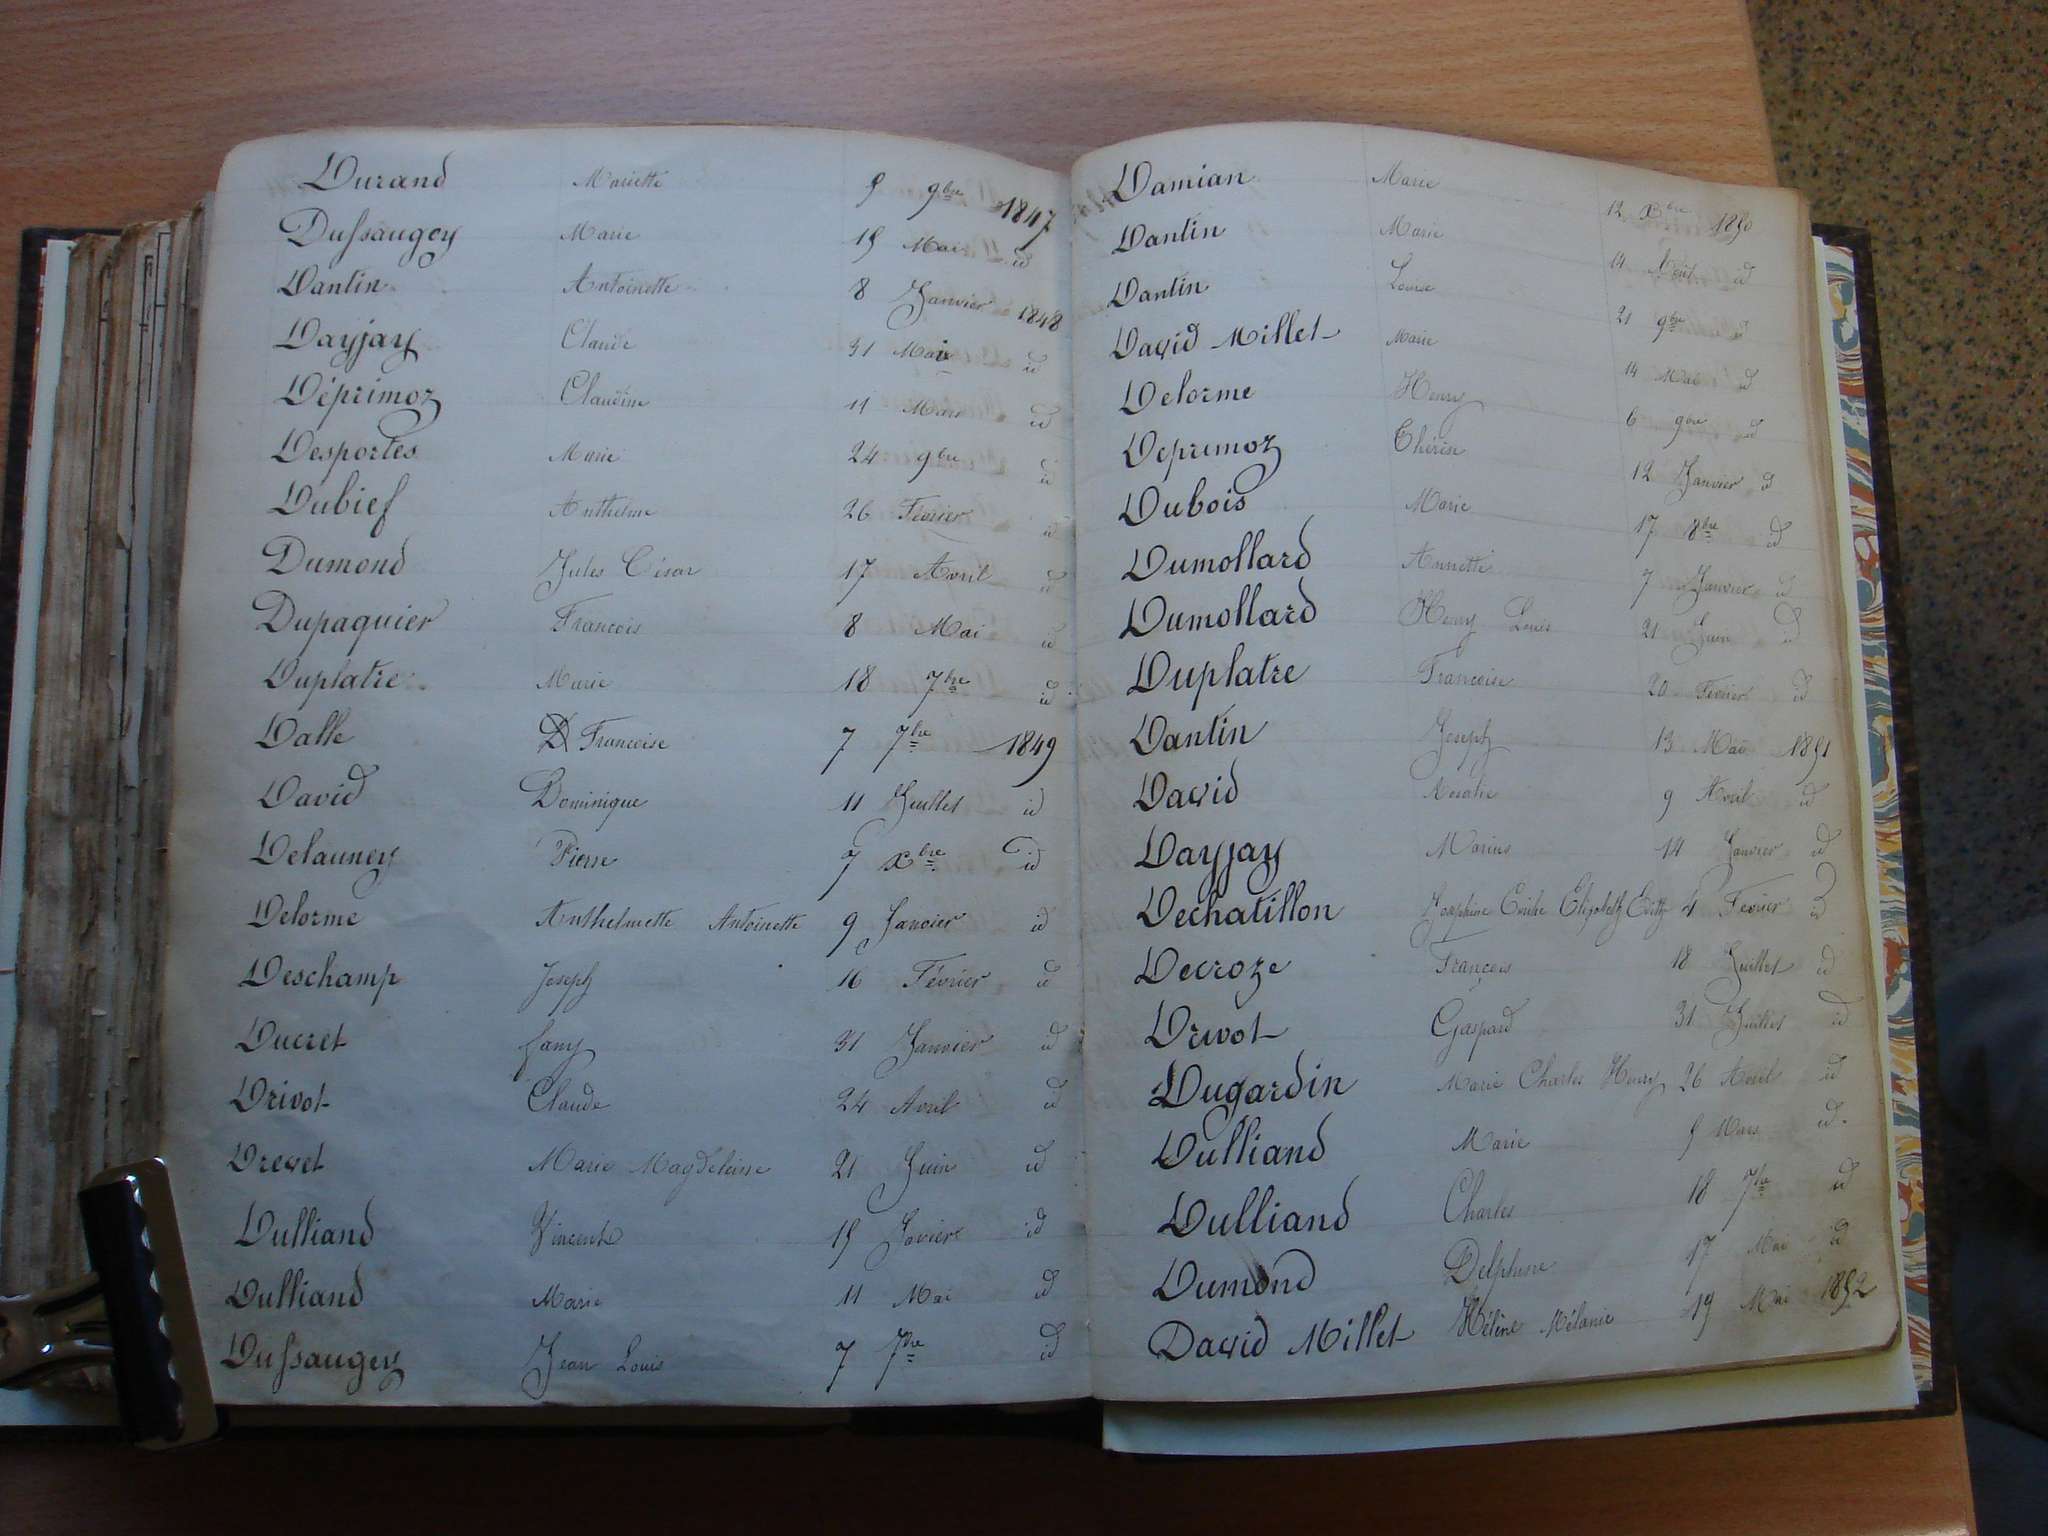 Durand Mariette 9 9bre 1847
Dussaugey Marie 15 Mai id
Dantin Antoinette 8 Janvier 1848
Dayjay Claude 31 Mai id
Déprimoz Claudine 11 Mars id
Desportes Marie 24 9bre id
Dubief Anthelme 26 Février id
Dumond Jules César 17 Avril id
Dupaquier François 8 Mai id
Duplatre Marie 18 7bre id
Dalle Françoise 7 7bre 1849
David Dominique 11 Juillet id
Delauney Pierre 7 xbre id
Delorme Anthelmette Antoinette 9 Janvier id
Deschamp Joseph 16 Février id
Ducret fany 31 Janvier id
Drivot Claude 24 Avril id
Drevet Marie Magdeleine 21 Juin id
Dulliand Vincent 15 Janvier id
Dulliand Marie 11 Mai id
Dussaugey Jean Louis 7 7bre id
Damian Marie 12 xbre 1850
Dantin Marie 14 Août id
Dantin Louise 21 9bre id
David Millet Marie 14 Mai id
Delorme Henry 6 9bre id
Deprimoz Thérèse 12 Janvier id
Dubois Marie 17 8bre id
Dumollard Annette 7 Janvier id
Dumollard Henry Louis 21 Juin id
Duplatre Françoise 20 Février id
Dantin Joseph 13 Mai 1851
David 9 Avril id
Dayjay Marius 14 Janvier id
Dechatillon Joséphine Emilie Elizabeth Edith 4 Fevrier id
Decroze François 18 Juillet id
Drivot Gaspard 31 Juillet id
Dugardin Marie Charles Henry 26 Avril id
Dulliand Marie 5 Mars id.
Dulliand Charles 18 7bre id
Dumond Delphine 17 Mai id
David Millet Hélène Mélanie 19 Mai 1852